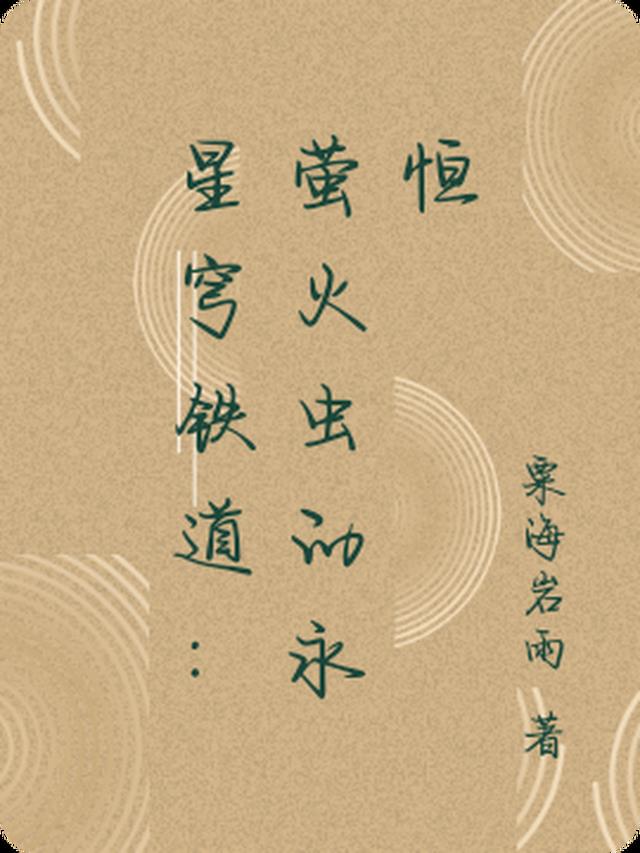 星穹铁道：
萤火虫的永
恒
粟海岩雨 著